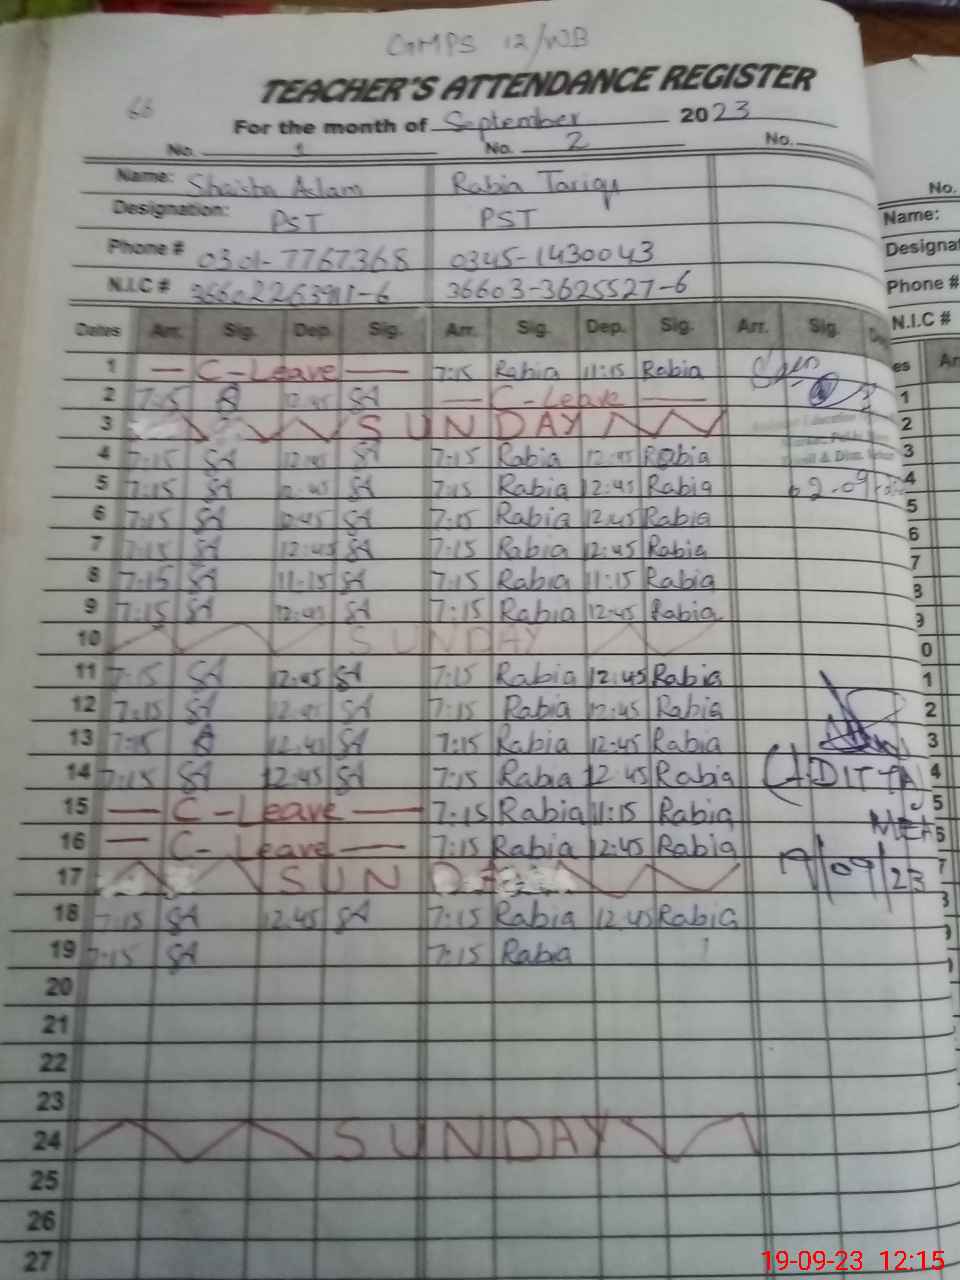 GMPS 12/WB
TEACHER'S ATTENDANCE REGISTER
66
For the month of September 2023
No. 1 No. 2 No.
Name: Shaista Aslam Rabia Tariq
Designation: PST PST
Phone # 0301-7767368 0345-1430043
N.I.C # 36603-3625527-6
Dates Arr. Sig. Dep. Sig. Arr. Sig. Dep. Sig. Arr. Sig. Dep.
1 — C-Leave — 7:15 Rabia 11:15 Rabia
2 7:15 12:45 SA — C-Leave —
3 SUNDAY
4 7:15 SA 12:45 SA 7:15 Rabia 12:45 Rabia
5 7:15 SA 12:45 SA 7:15 Rabia 12:45 Rabia
6 7:15 SA 12:45 SA 7:15 Rabia 12:45 Rabia
7 7:15 SA 12:45 SA 7:15 Rabia 12:45 Rabia
8 7:15 SA 11:15 SA 7:15 Rabia 11:15 Rabia
9 7:15 SA 12:45 SA 7:15 Rabia 12:45 Rabia
10 SUNDAY
11 7:15 SA 12:45 SA 7:15 Rabia 12:45 Rabia
12 7:15 SA 12:45 SA 7:15 Rabia 12:45 Rabia
13 7:15 12:45 SA 7:15 Rabia 12:45 Rabia
14 7:15 SA 12:45 SA 7:15 Rabia 12:45 Rabia DITTA
15 — C-Leave — 7:15 Rabia 11:15 Rabia
16 — C-Leave — 7:15 Rabia 12:45 Rabia MEA
17 SUNDAY 19/09/23
18 7:15 SA 12:45 SA 7:15 Rabia 12:45 Rabia
19 7:15 SA 7:15 Rabia
20
21
22
23
24 SUNDAY
25
26
27
No.
Name:
Phone #
N.I.C #
19-09-23 12:15